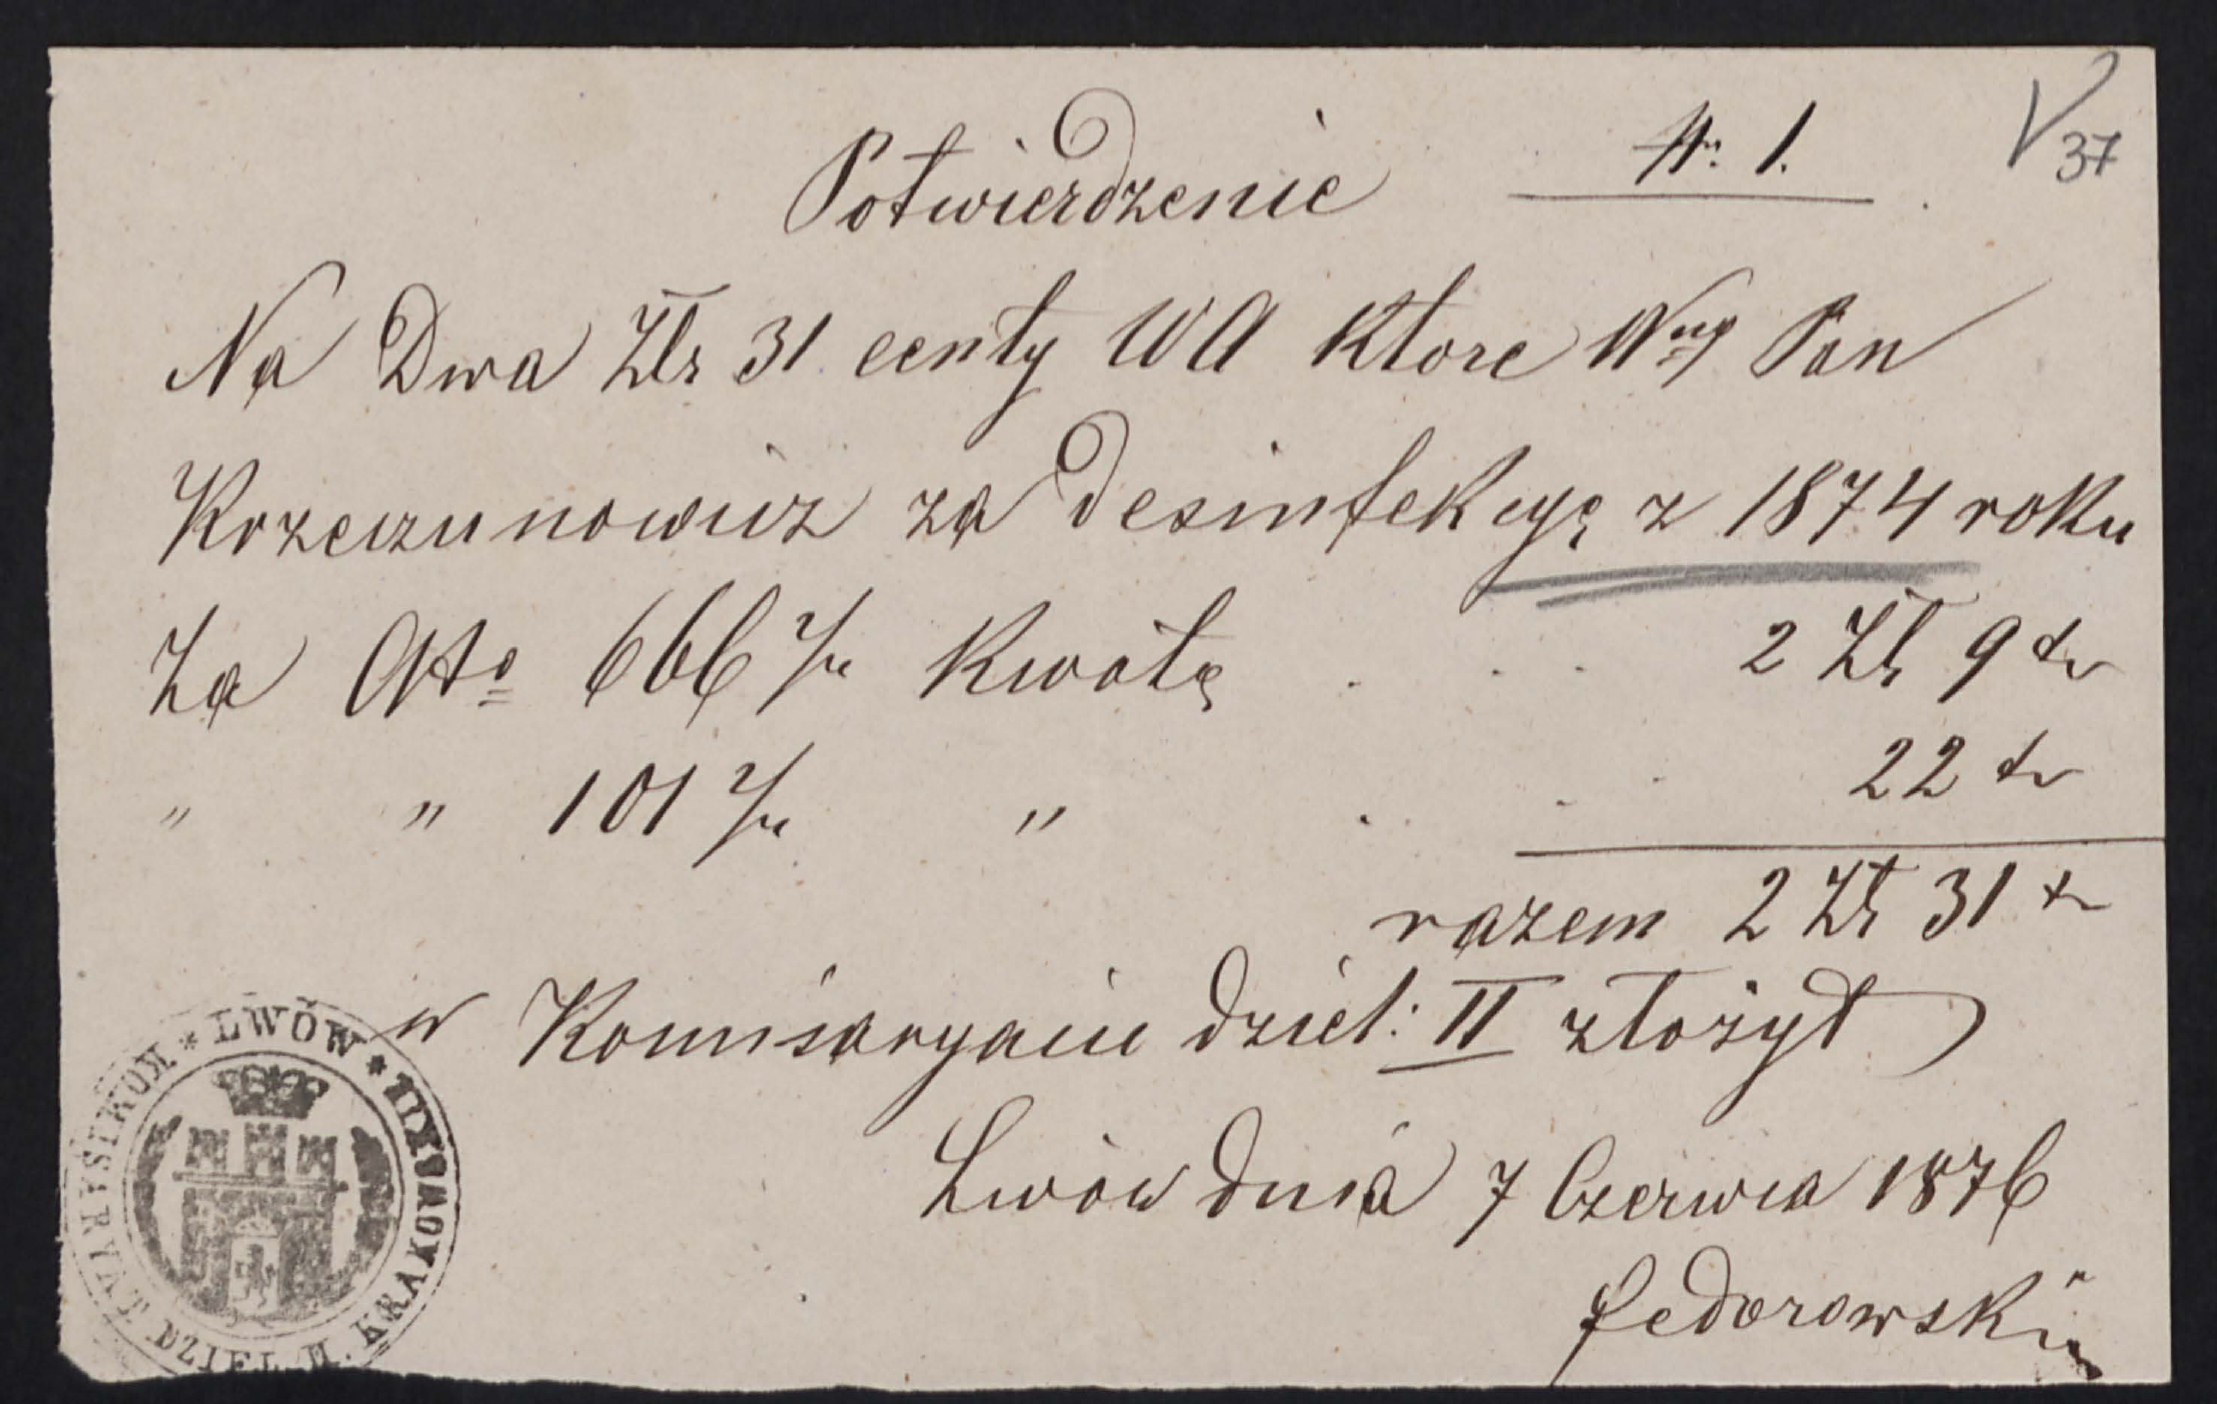 Potwierdzenie
Nr. 1.
V 37
Na Dwa Złr 31 centy WA Ktore Wny Pan
Krzeczunowicz za desinfekcyę z 1874 roku
Za Nro 666 2/4 Kwotę . . . 2 Złr 9 ct
" " 101 2/4 " . . . 22 ct
razem 2 Złr 31 ct
w Komisaryacie dziel: II złożył
Lwów dnia 7 Czerwca 1876
Fedorowski
* LWÓW *
DZIEL. II. KRAKOWSKIEJ